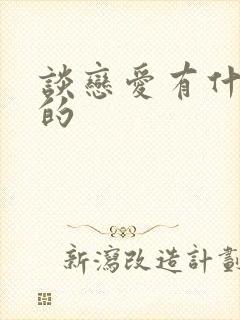 談戀愛有什
的
新瀉改造計劃